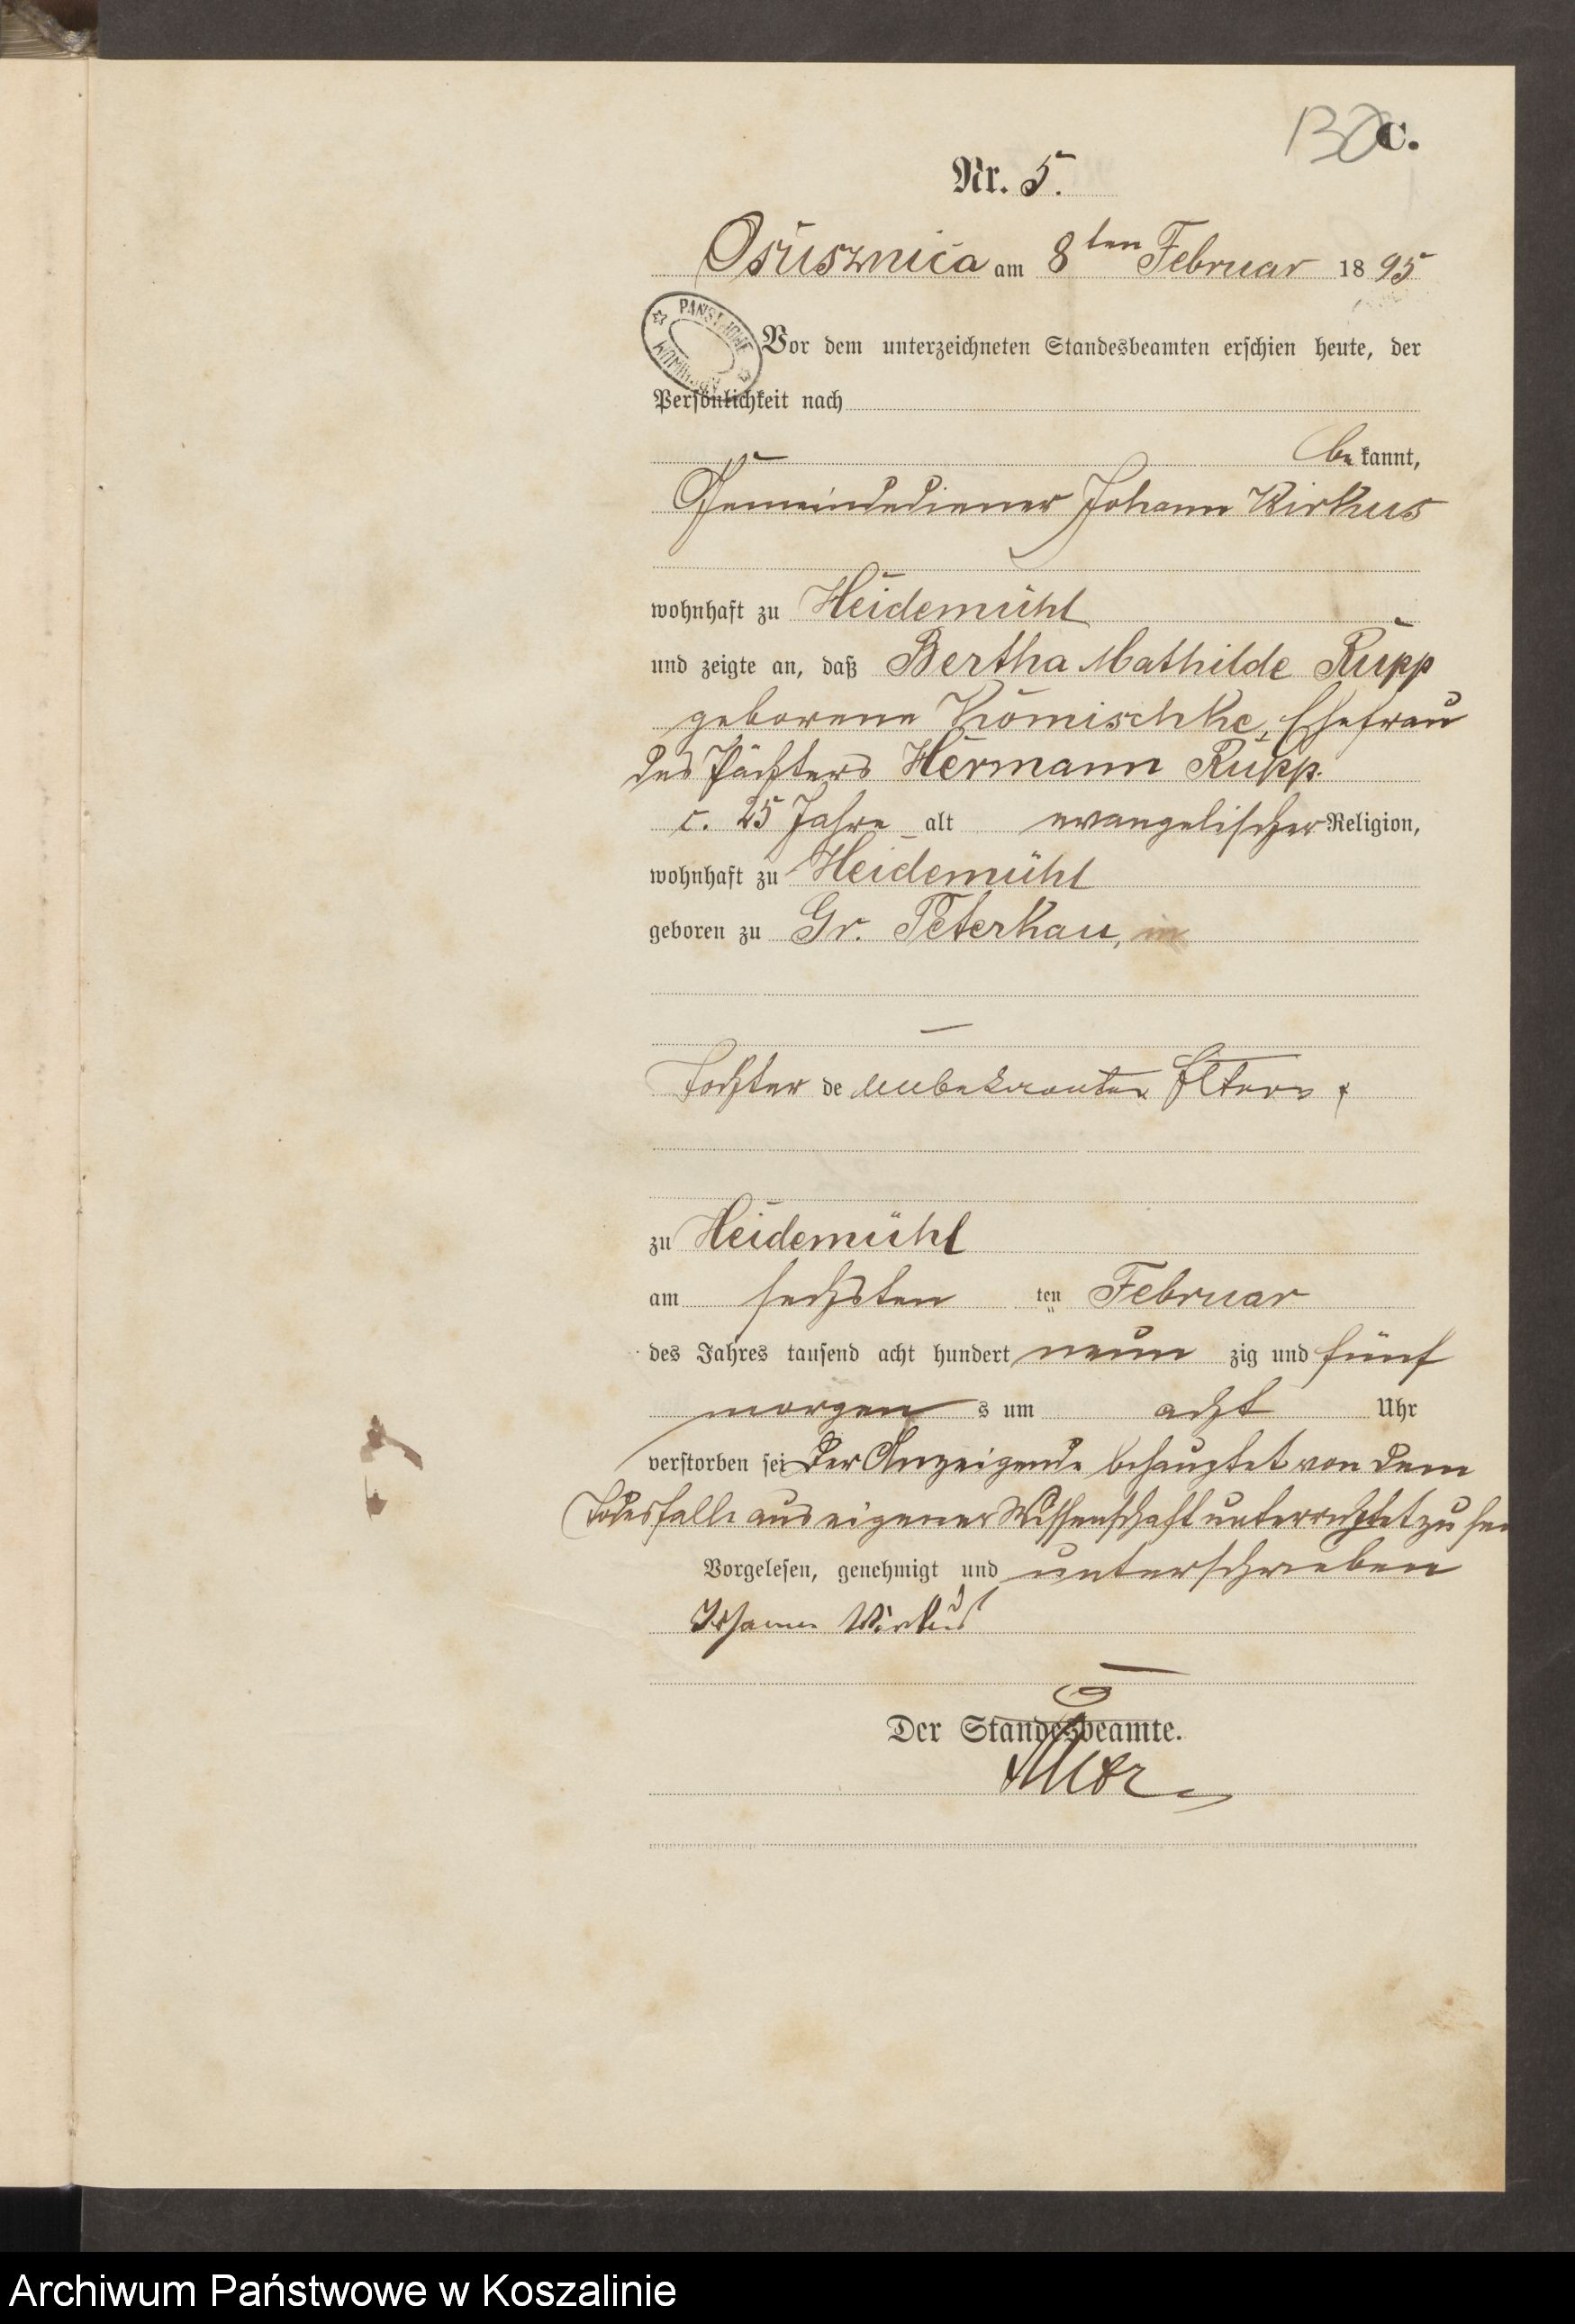 130 C.
Nr. 5.
Osusznica am 8ten Februar 1895
PAŃSTWOWE ARCHIWUM
Vor dem unterzeichneten Standesbeamten erschien heute, der
Persönlichkeit nach
bekannt,
Gemeindediener Johann Wirkus
wohnhaft zu Heidemühl
und zeigte an, daß Bertha Mathilde Rupp
geborene Ehefrau
des Pächters Hermann Rupp.
c. 25 Jahre alt evangelischer Religion,
wohnhaft zu Heidemühl
geboren zu Gr. Peterkau, in
Tochter de unbekannter Eltern
zu Heidemühl
am sechsten ten Februar
des Jahres tausend acht hundert neun zig und fünf
morgen s um acht Uhr
verstorben sei Der Anzeigende behauptet von dem
Todesfalle aus eigener Wissenschaft unterrichtet zu sei
Vorgelesen, genehmigt und unterschrieben
Johann Wirkus
Der Standesbeamte.
Archiwum Państwowe w Koszalinie